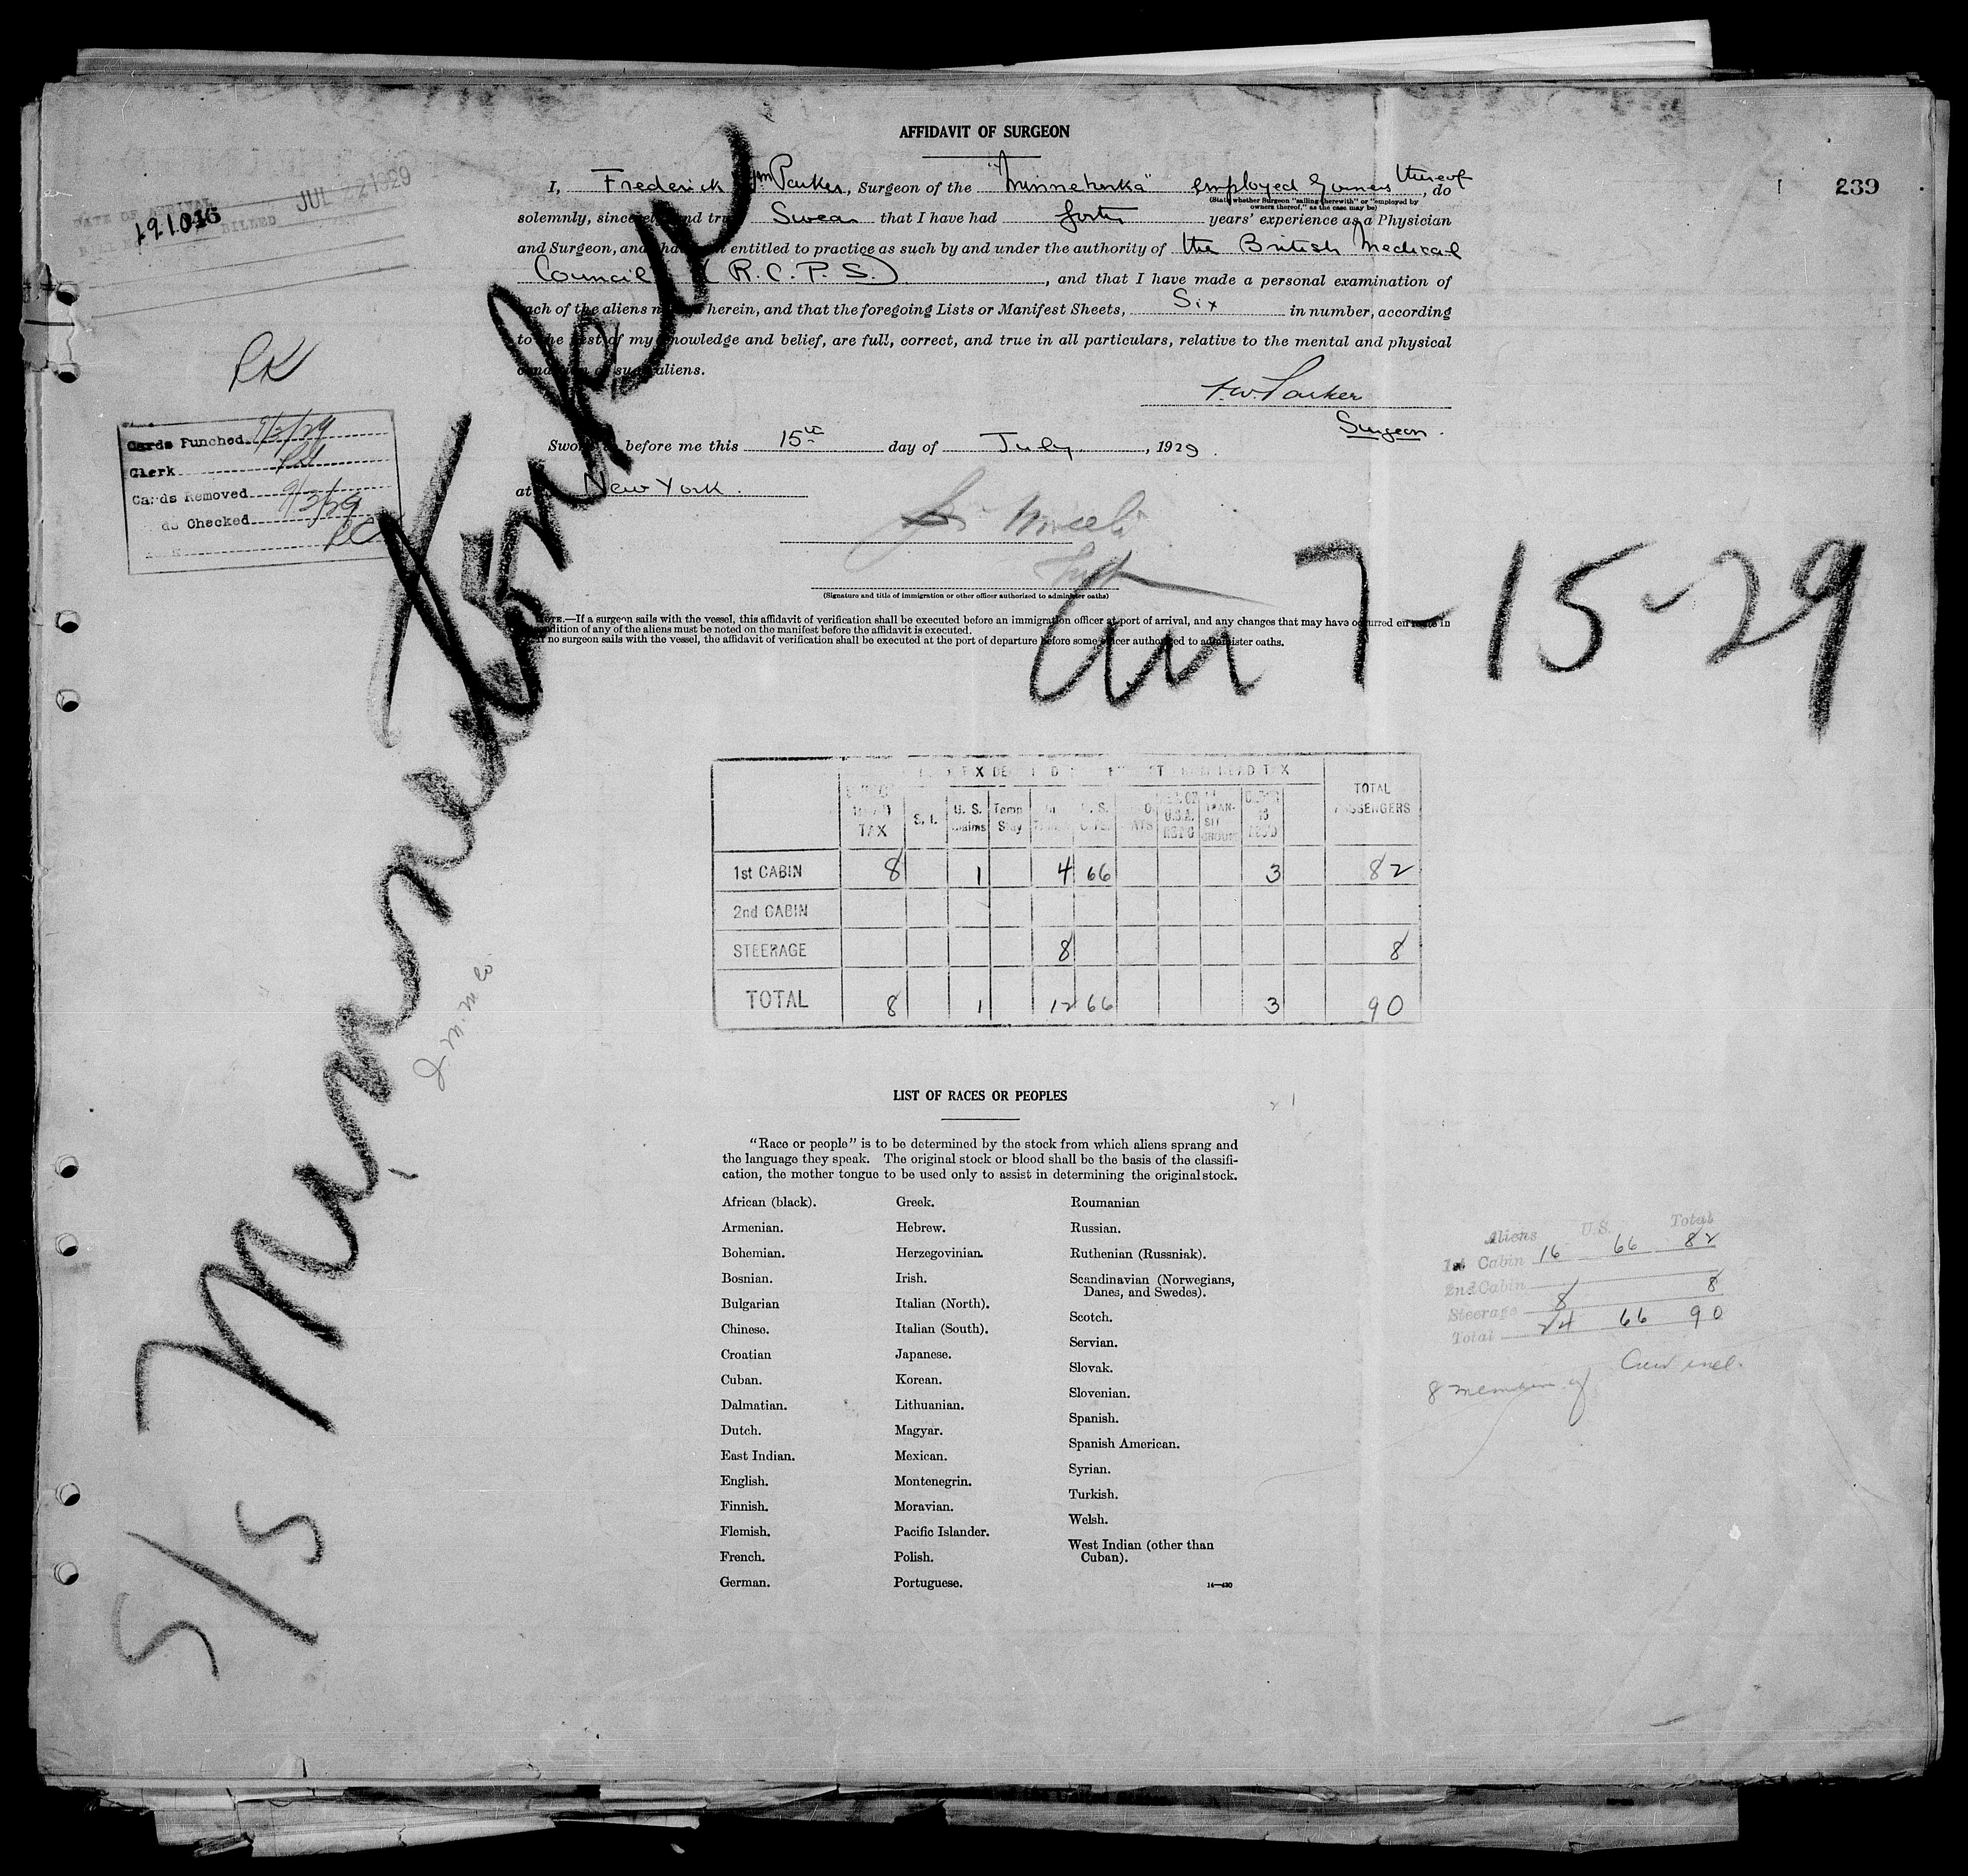 AFFIDAVIT OF SURGEON
I, Frederick Wm Parker, Surgeon of the "Minnetonka" employed Owners thereof, do
(State whether Surgeon "sailing therewith" or "employed by
owners thereof," as the case may be)
solemnly, sincerely and truly Swear that I have had forty years' experience as a Physician
and Surgeon, and that I am entitled to practice as such by and under the authority of the British Medical
Council (R.C.P.S.), and that I have made a personal examination of
each of the aliens named herein, and that the foregoing Lists or Manifest Sheets, Six in number, according
to the best of my knowledge and belief, are full, correct, and true in all particulars, relative to the mental and physical
condition of such aliens.
F.W. Parker
Surgeon.
Sworn to before me this 15th day of July, 1929.
at New York.
(Signature and title of immigration or other officer authorized to administer oaths)
NOTE.—If a surgeon sails with the vessel, this affidavit of verification shall be executed before an immigration officer at port of arrival, and any changes that may have occurred en route in
condition of any of the aliens must be noted on the manifest before the affidavit is executed.
If no surgeon sails with the vessel, the affidavit of verification shall be executed at the port of departure before some officer authorized to administer oaths.
239
DATE OF ARRIVAL
191046
BILLED JUL 22 1929
RK
Cards Punched 9/3/29
Clerk
Cards Removed 9/3/29
Cards Checked
S/S Minnetonka
arr 7-15-29
HEAD TAX
TAX S.I. U.S. Claims Temp Stay In U.S. U.S.A. TOTAL PASSENGERS
1st CABIN 8 1 4 66 3 82
2nd CABIN
STEERAGE 8 8
TOTAL 8 1 12 66 3 90
LIST OF RACES OR PEOPLES
"Race or people" is to be determined by the stock from which aliens sprang and
the language they speak. The original stock or blood shall be the basis of the classifi-
cation, the mother tongue to be used only to assist in determining the original stock.
African (black).
Armenian.
Bohemian.
Bosnian.
Bulgarian
Chinese.
Croatian
Cuban.
Dalmatian.
Dutch.
East Indian.
English.
Finnish.
Flemish.
French.
German.
Greek.
Hebrew.
Herzegovinian.
Irish.
Italian (North).
Italian (South).
Japanese.
Korean.
Lithuanian.
Magyar.
Mexican.
Montenegrin.
Moravian.
Pacific Islander.
Polish.
Portuguese.
Roumanian
Russian.
Ruthenian (Russniak).
Scandinavian (Norwegians,
Danes, and Swedes).
Scotch.
Servian.
Slovak.
Slovenian.
Spanish.
Spanish American.
Syrian.
Turkish.
Welsh.
West Indian (other than
Cuban).
14—430
Aliens U.S. Total
1st Cabin 16 66 82
2nd Cabin
Steerage 8 8
Total 24 66 90
8 members of Crew incl.